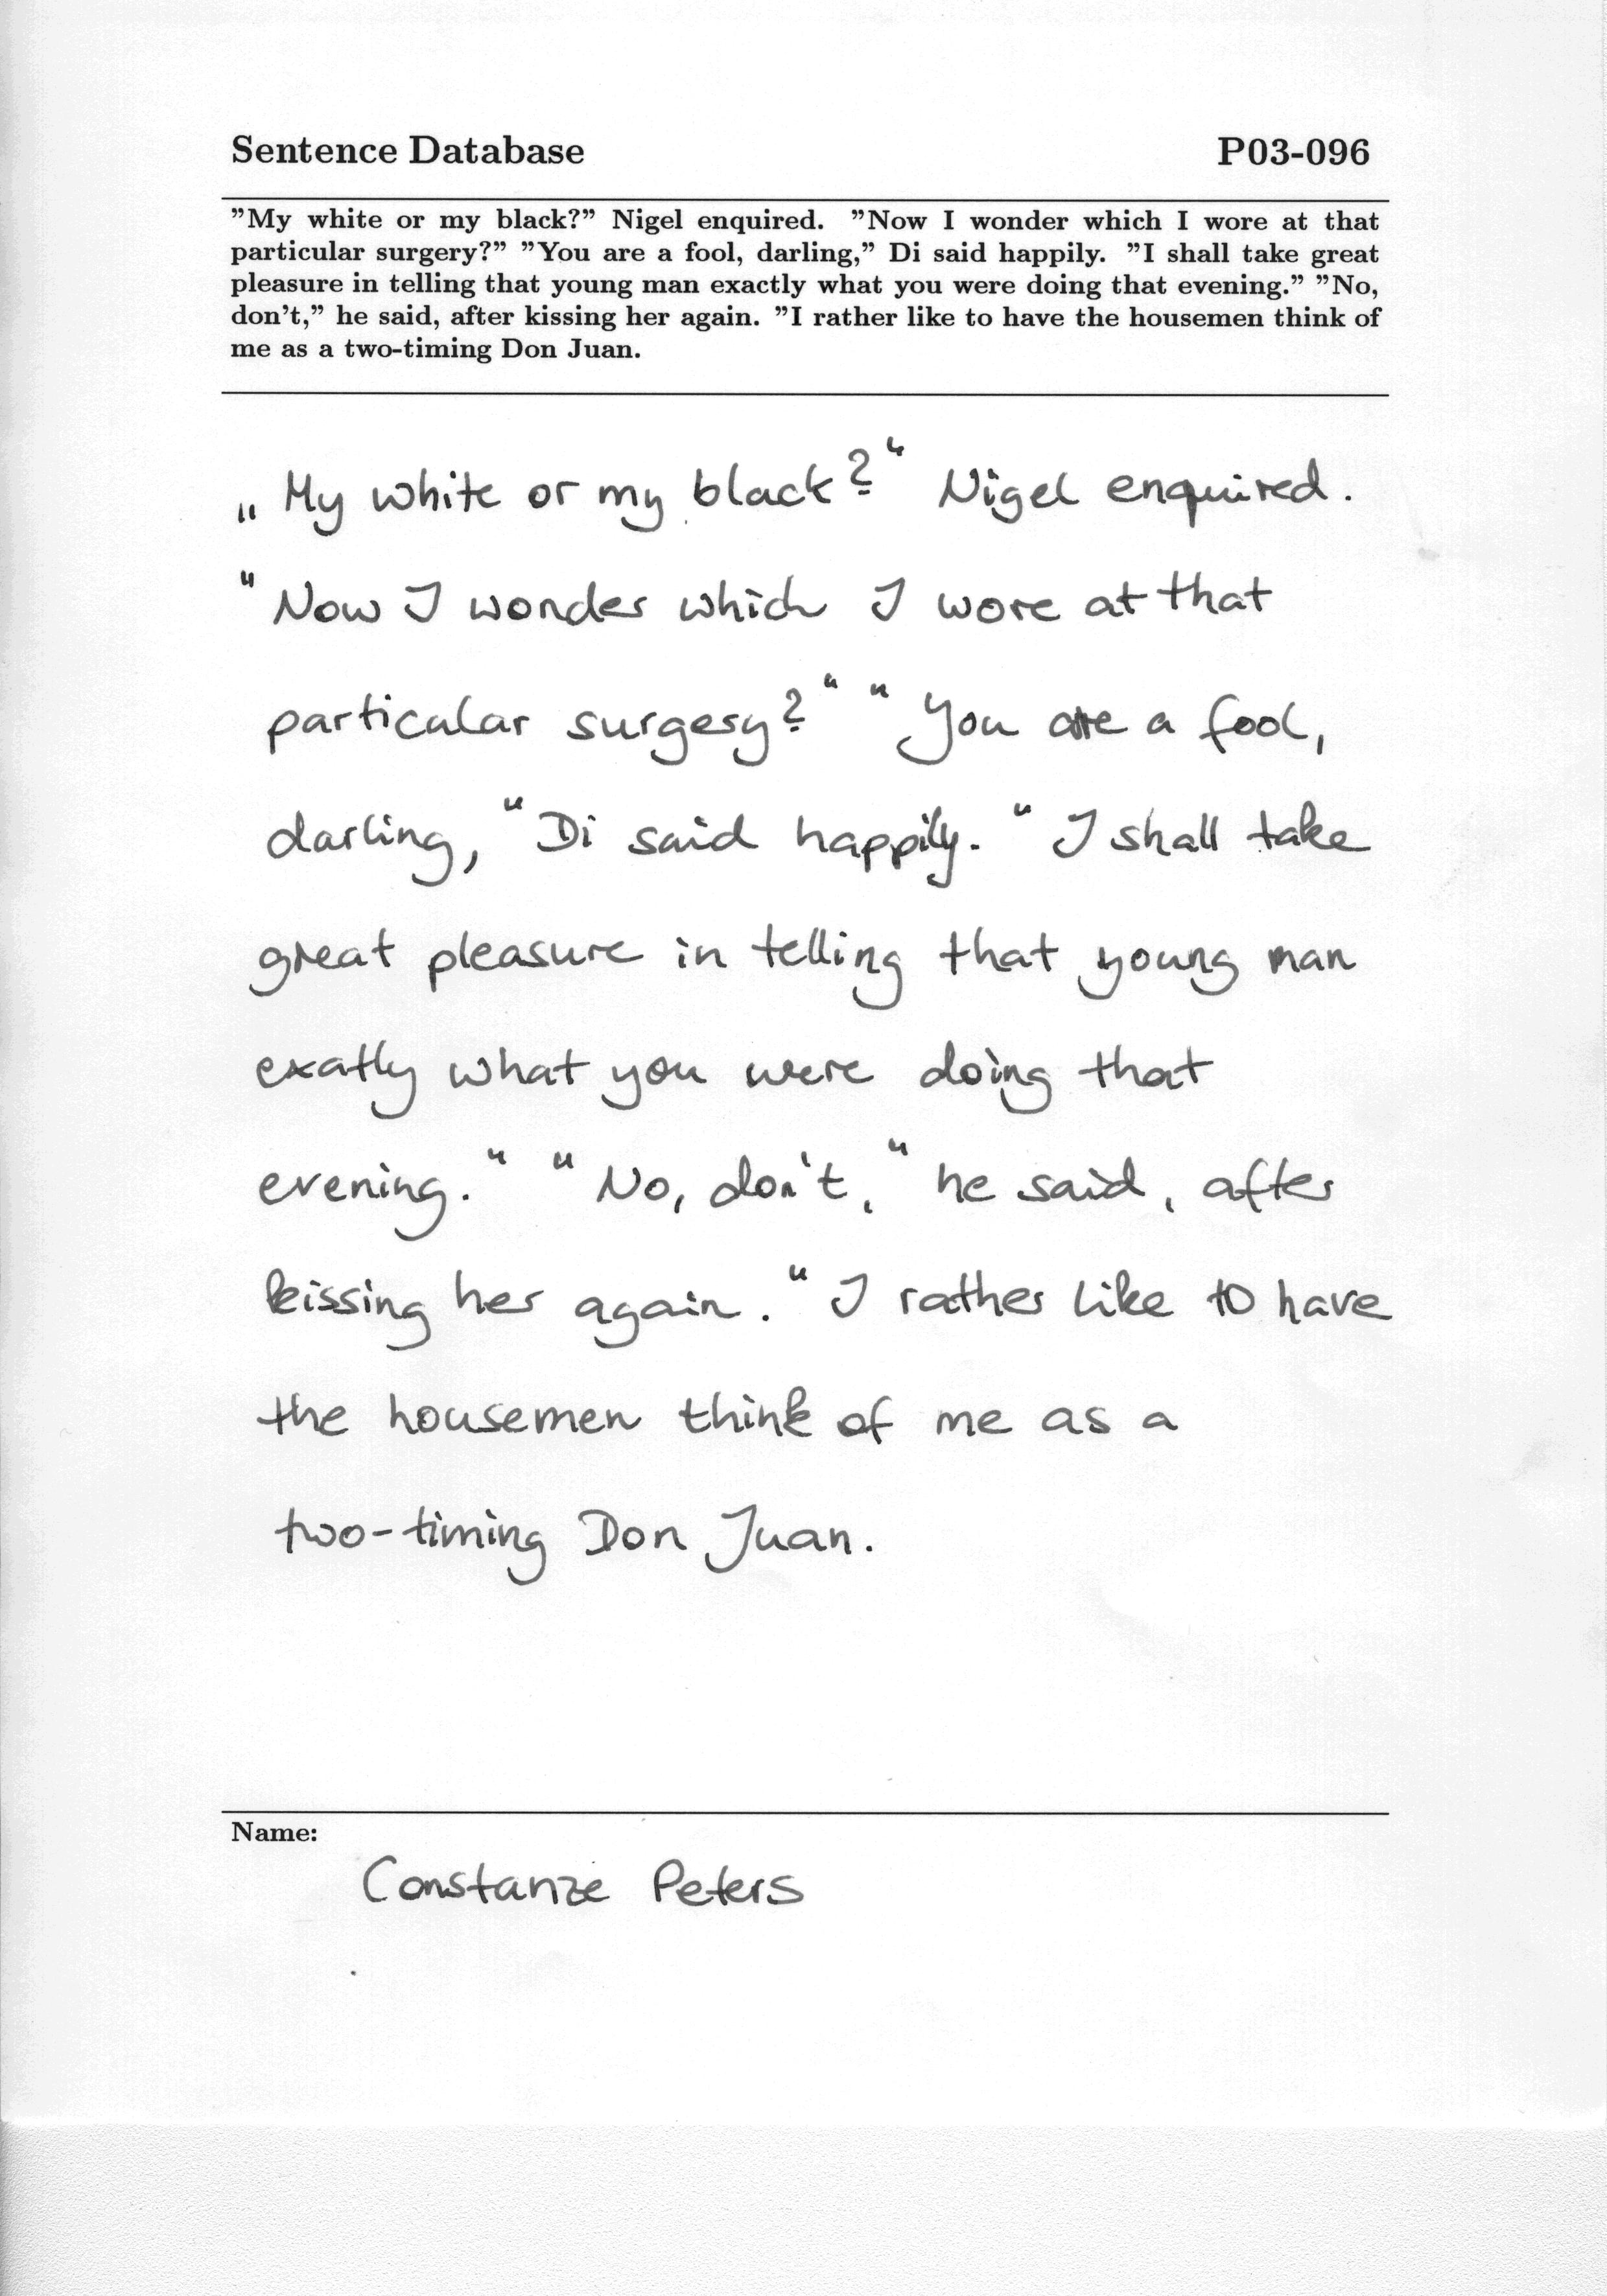 Sentence Database P03-096
”My white or my black?” Nigel enquired. ”Now I wonder which I wore at that
particular surgery?” ”You are a fool, darling,” Di said happily. ”I shall take great
pleasure in telling that young man exactly what you were doing that evening.” ”No,
don’t,” he said, after kissing her again. ”I rather like to have the housemen think of
me as a two-timing Don Juan.
„My white or my black?“ Nigel enquired.
"Now I wonder which I wore at that
particular surgery?" "You are a fool,
darling," Di said happily. "I shall take
great pleasure in telling that young man
exatly what you were doing that
evening." "No, don't," he said, after
kissing her again. "I rather like to have
the housemen think of me as a
two-timing Don Juan.
Name:
Constanze Peters